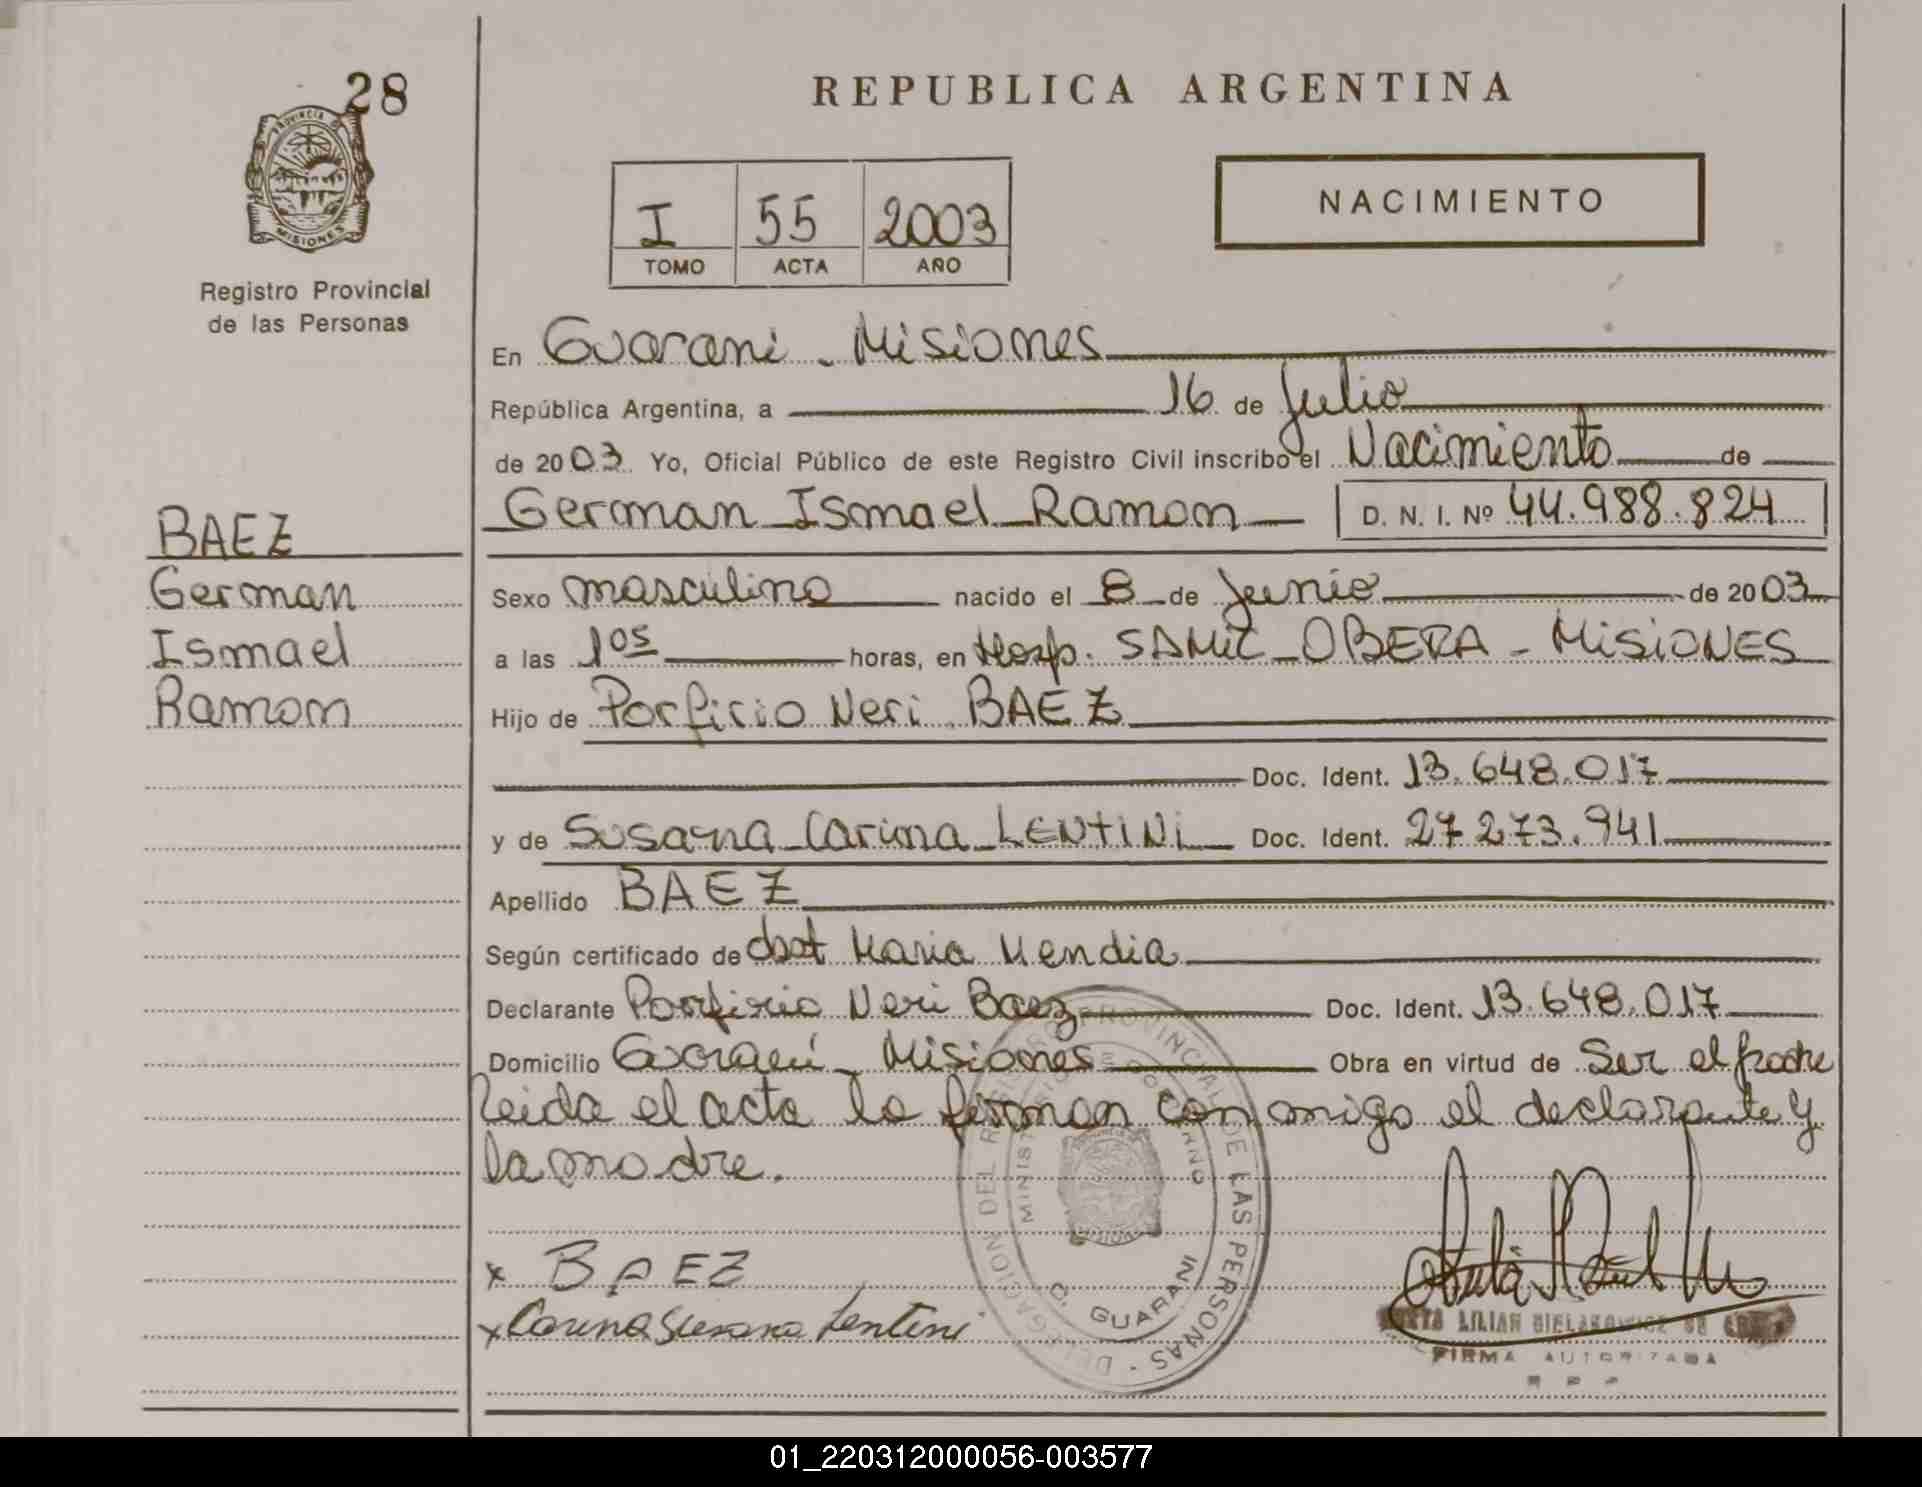 28
PROVINCIA DE
MISIONES
Registro Provincial
de las Personas
REPUBLICA ARGENTINA
I 55 2003
TOMO ACTA AÑO
NACIMIENTO
En Guarani - Misiones
República Argentina, a 16 de Julio
de 2003 Yo, Oficial Público de este Registro Civil inscribo el Nacimiento de
German Ismael Ramon D. N. I. Nº 44.988.824
BAEZ
German
Ismael
Ramon
Sexo masculino nacido el 8 de Junio de 2003
a las 1 os horas, en Hosp. SAMIC - OBERA - MISIONES
Hijo de Porfirio Neri BAEZ
Doc. Ident. 13.648.017
y de Susana Carina LENTINI Doc. Ident. 27.273.941
Apellido BAEZ
Según certificado de obst Maria Mendia
Declarante Porfirio Neri Baez Doc. Ident. 13.648.017
Domicilio Guarani - Misiones Obra en virtud de Ser el padre
Leida el acta la firman conmigo el declarante y
la madre.
x BAEZ
x Carina Susana Lentini
DELEGACION DEL REGISTRO PROVINCIAL DE LAS PERSONAS
MINISTERIO DE GOBIERNO
C. GUARANI
LILIAN
FIRMA AUTORIZADA
01_220312000056-003577